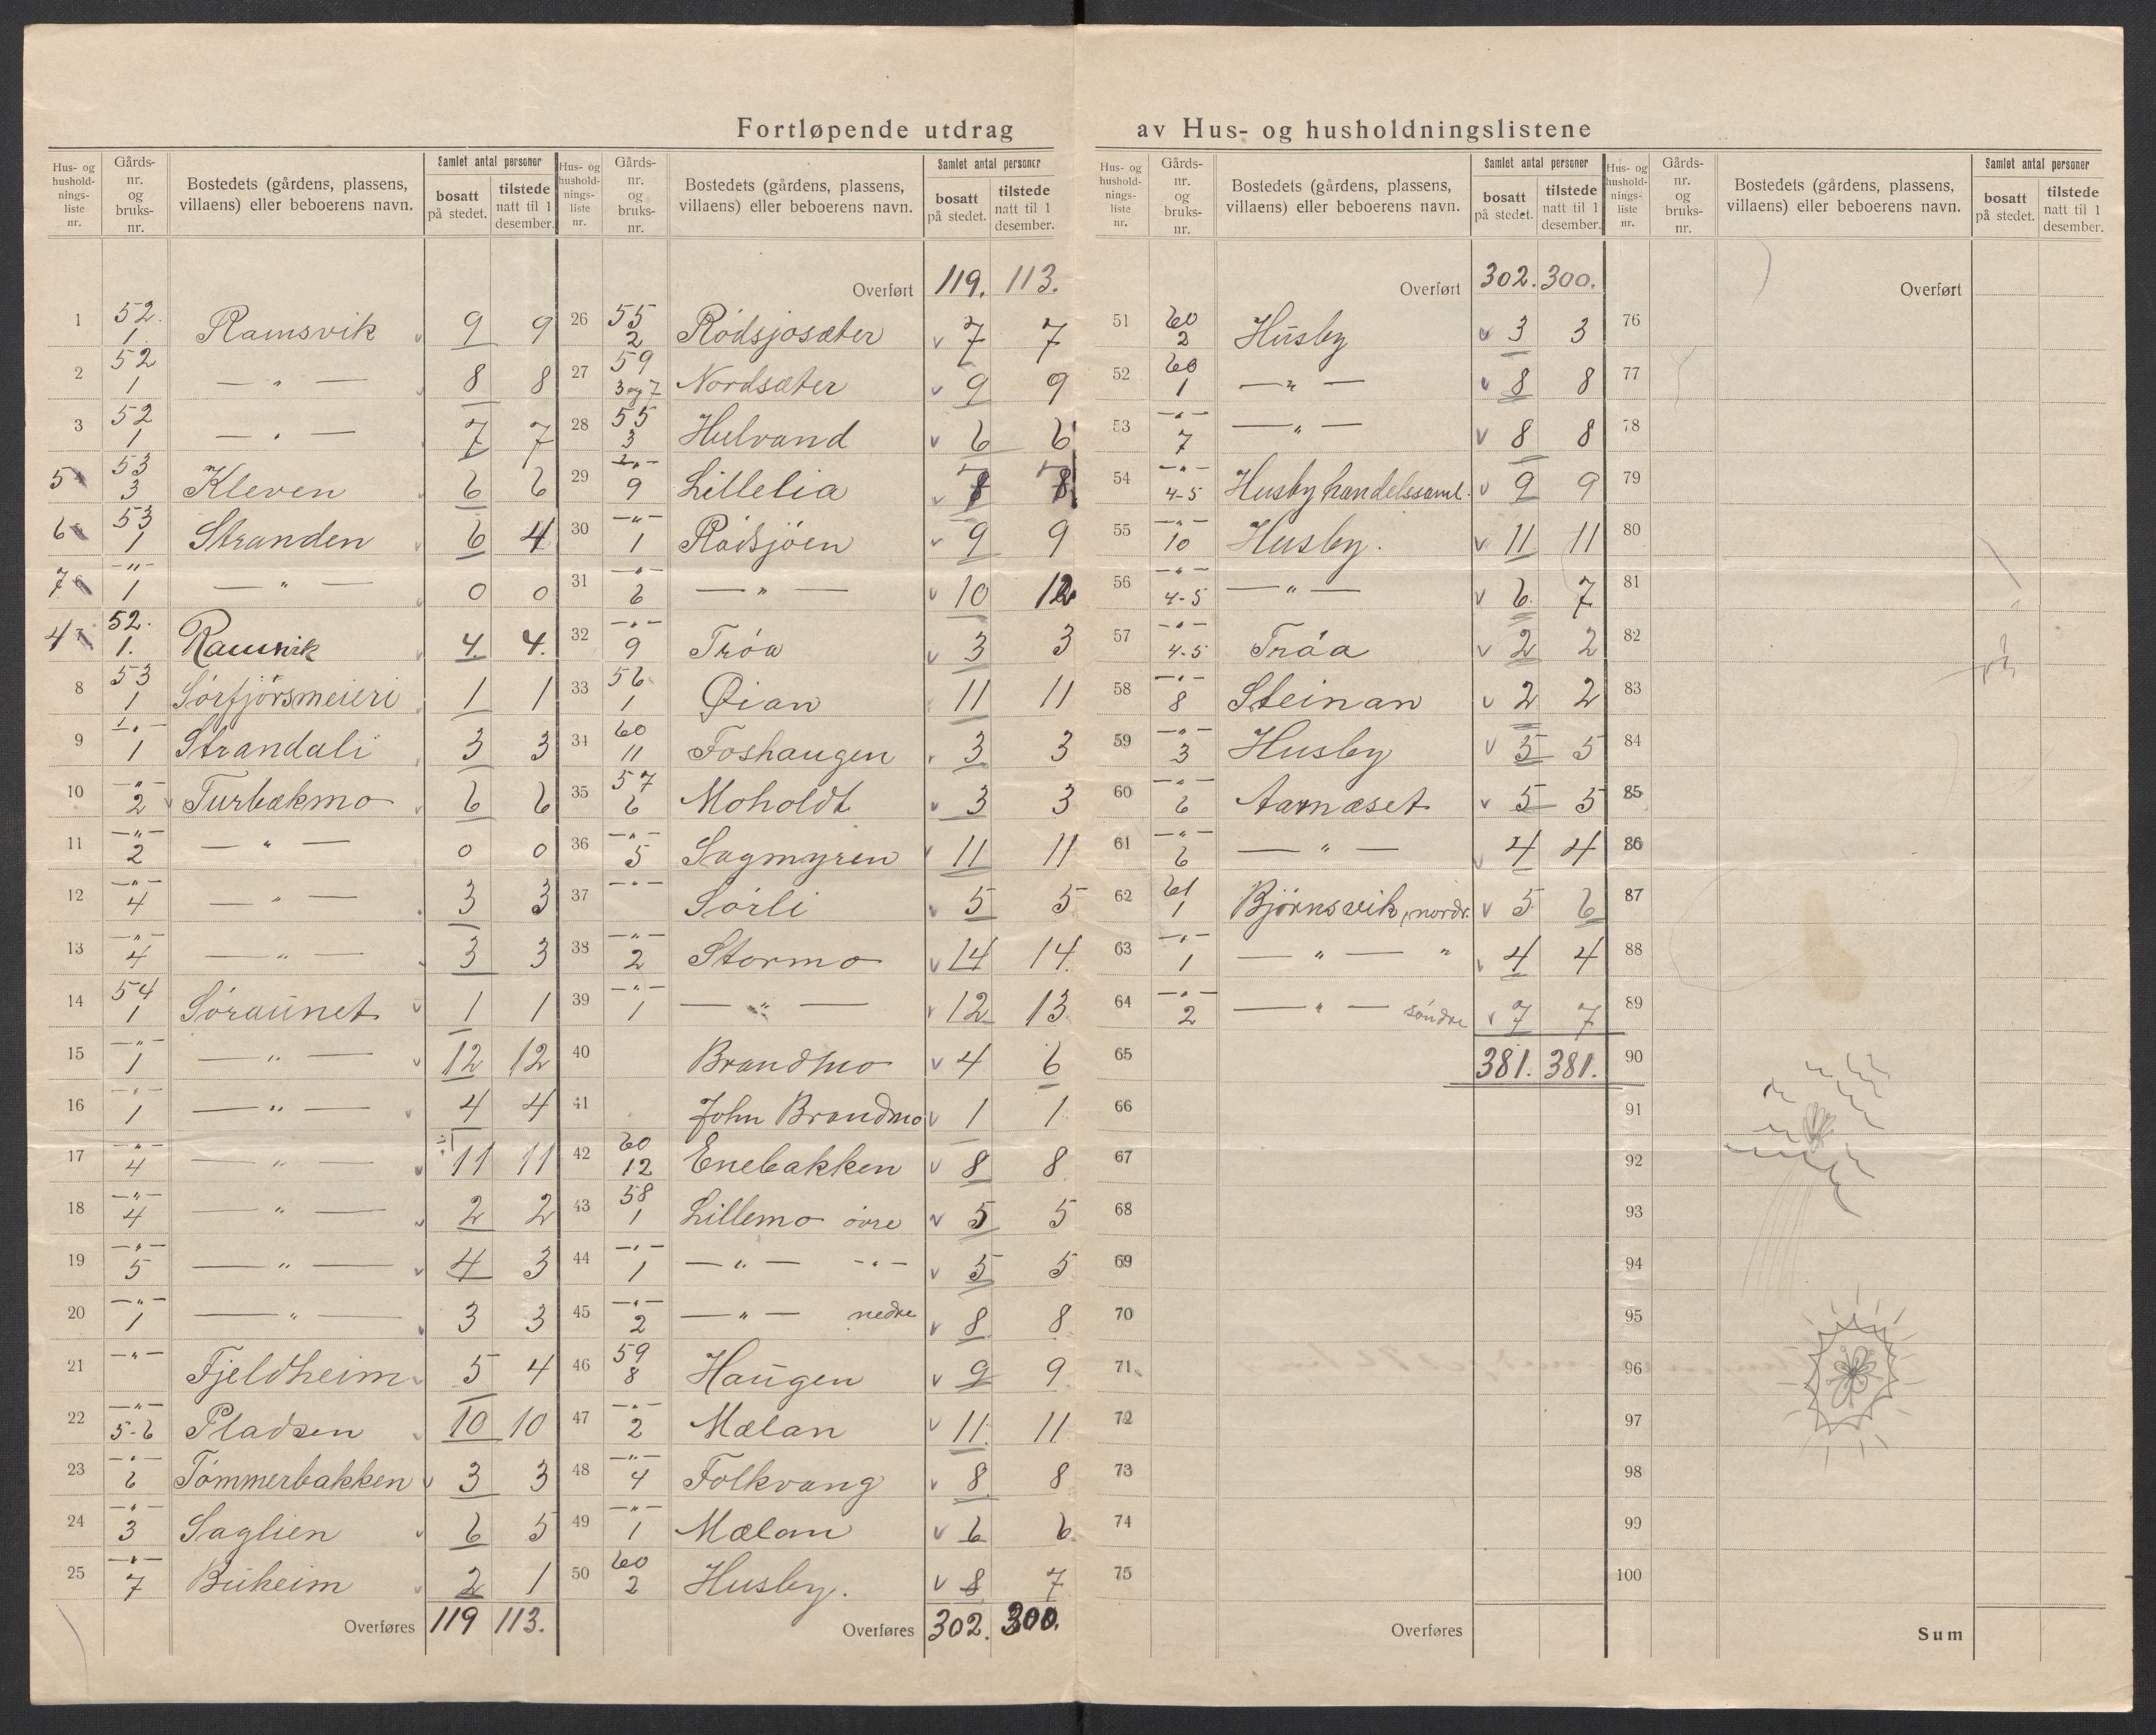 Fortløpende utdrag av Hus- og husholdningslistene
Hus- og husholdnings- liste nr. Gårds- nr. og bruks- nr. Bostedets (gårdens, plassens, villaens) eller beboerens navn. Samlet antal personer bosatt på stedet. tilstede natt til 1 desember.
1 52. 1 Ramsvik 9 9
2 52 1 — " — 8 8
3 52 1 — " — 7 7
5 53 3 Kleven 6 6
6 53 1 Stranden 6 4
7 — " — 1 — " — 0 0
4 52. 1. Ramsvik 4. 4.
8 53 1 Sörfjörsmeieri 1 1
9 — " — 1 Strandali 3 3
10 — " — 2 Turbækmo 6 6
11 — " — 2 — " — 0 0
12 — " — 4 — " — 3 3
13 — " — 4 — " — 3 3
14 54 1 Söraunet 1 1
15 — " — 1 — " — 12 12
16 — " — 1 — " — 4 4
17 — " — 4 — " — 11 11
18 — " — 4 — " — 2 2
19 — " — 5 — " — 4 3
20 — " — 1 — " — 3 3
21 — " — Fjeldheim 5 4
22 — " — 5-6 Pladsen 10 10
23 — " — 6 Tömmerbakken 3 3
24 — " — 3 Saglien 6 5
25 — " — 7 Buheim 2 1
Overføres 119 113.
Hus- og husholdnings- liste nr. Gårds- nr. og bruks- nr. Bostedets (gårdens, plassens, villaens) eller beboerens navn. Samlet antal personer bosatt på stedet. tilstede natt til 1 desember.
Overført 119. 113.
26 55 2 Rödsjosæter 7 7
27 59 3 og 7 Nordsæter 9 9
28 55 3 Hulvand 6 6
29 — " — 9 Lillelia
30 — " — 1 Rödsjöen 9 9
31 — " — 6 — " — 10 12
32 — " — 9 Tröa 3 3
33 56 1 Øian 11 11
34 60 11 Foshaugen 3 3
35 57 6 Moholdt 3 3
36 — " — 5 Sagmyren 11 11
37 — " — Sörli 5 5
38 — " — 2 Stormo 14 14
39 — " — 1 — " — 12 13
40 Brandmo 4 6
41 John Brandmo 1 1
42 60 12 Enebakken 8 8
43 58 1 Lillemo övre 5 5
44 — " — 1 — " — - " - 5 5
45 — " — 2 — " — nedre 8 8
46 59 8 Haugen 9 9
47 — " — 2 Mælan 11 11
48 — " — 4 Folkvang 8 8
49 — " — 1 Mælan 6 6
50 60 2 Husby. 8 7
Overføres 302. 300.
Hus- og husholdnings- liste nr. Gårds- nr. og bruks- nr. Bostedets (gårdens, plassens, villaens) eller beboerens navn. Samlet antal personer bosatt på stedet. tilstede natt til 1 desember.
Overført 302. 300.
51 60 2 Husby 3 3
52 60 1 — " — 8 8
53 — " — 7 — " — 8 8
54 — " — 4-5 Husby handelssaml. 9 9
55 — " — 10 Husby. 11 11
56 — " — 4-5 — " — 6 7
57 — " — 4-5 Tröa 2 2
58 — " — 8 Steinan 2 2
59 — " — 3 Husby 5 5
60 — " — 6 Aarnæset 5 5
61 — " — 6 — " — 4 4
62 61 1 Björnsvik, nordr. 5 6
63 — " — 1 — " — " 4 4
64 — " — 2 — " — söndre 7 7
65 381. 381.
66
67
68
69
70
71
72
73
74
75
Overføres
Hus- og husholdnings- liste nr. Gårds- nr. og bruks- nr. Bostedets (gårdens, plassens, villaens) eller beboerens navn. Samlet antal personer bosatt på stedet. tilstede natt til 1 desember.
Overført
76
77
78
79
80
81
82
83
84
85
86
87
88
89
90
91
92
93
94
95
96
97
98
99
100
Sum